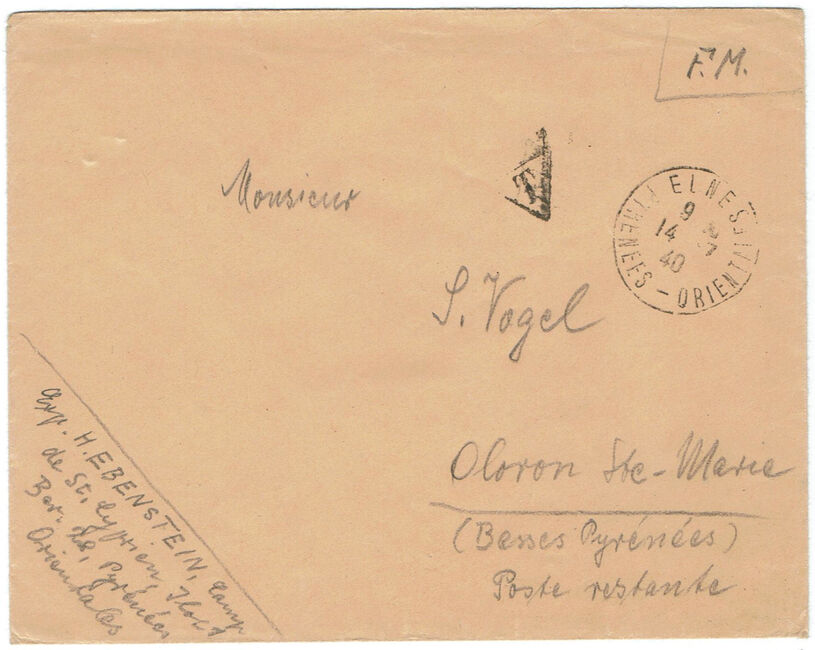 F.M.
T
ELNES
PYRENEES - ORIENTALES
9
14 7
40
Monsieur
S. Vogel
Oloron Ste-Marie
(Basses Pyrénées)
Poste restante
Exp. H. EBENSTEIN, Camp
de St. Cyprien, Ilot I
Bar. Pyrénées
Orientales